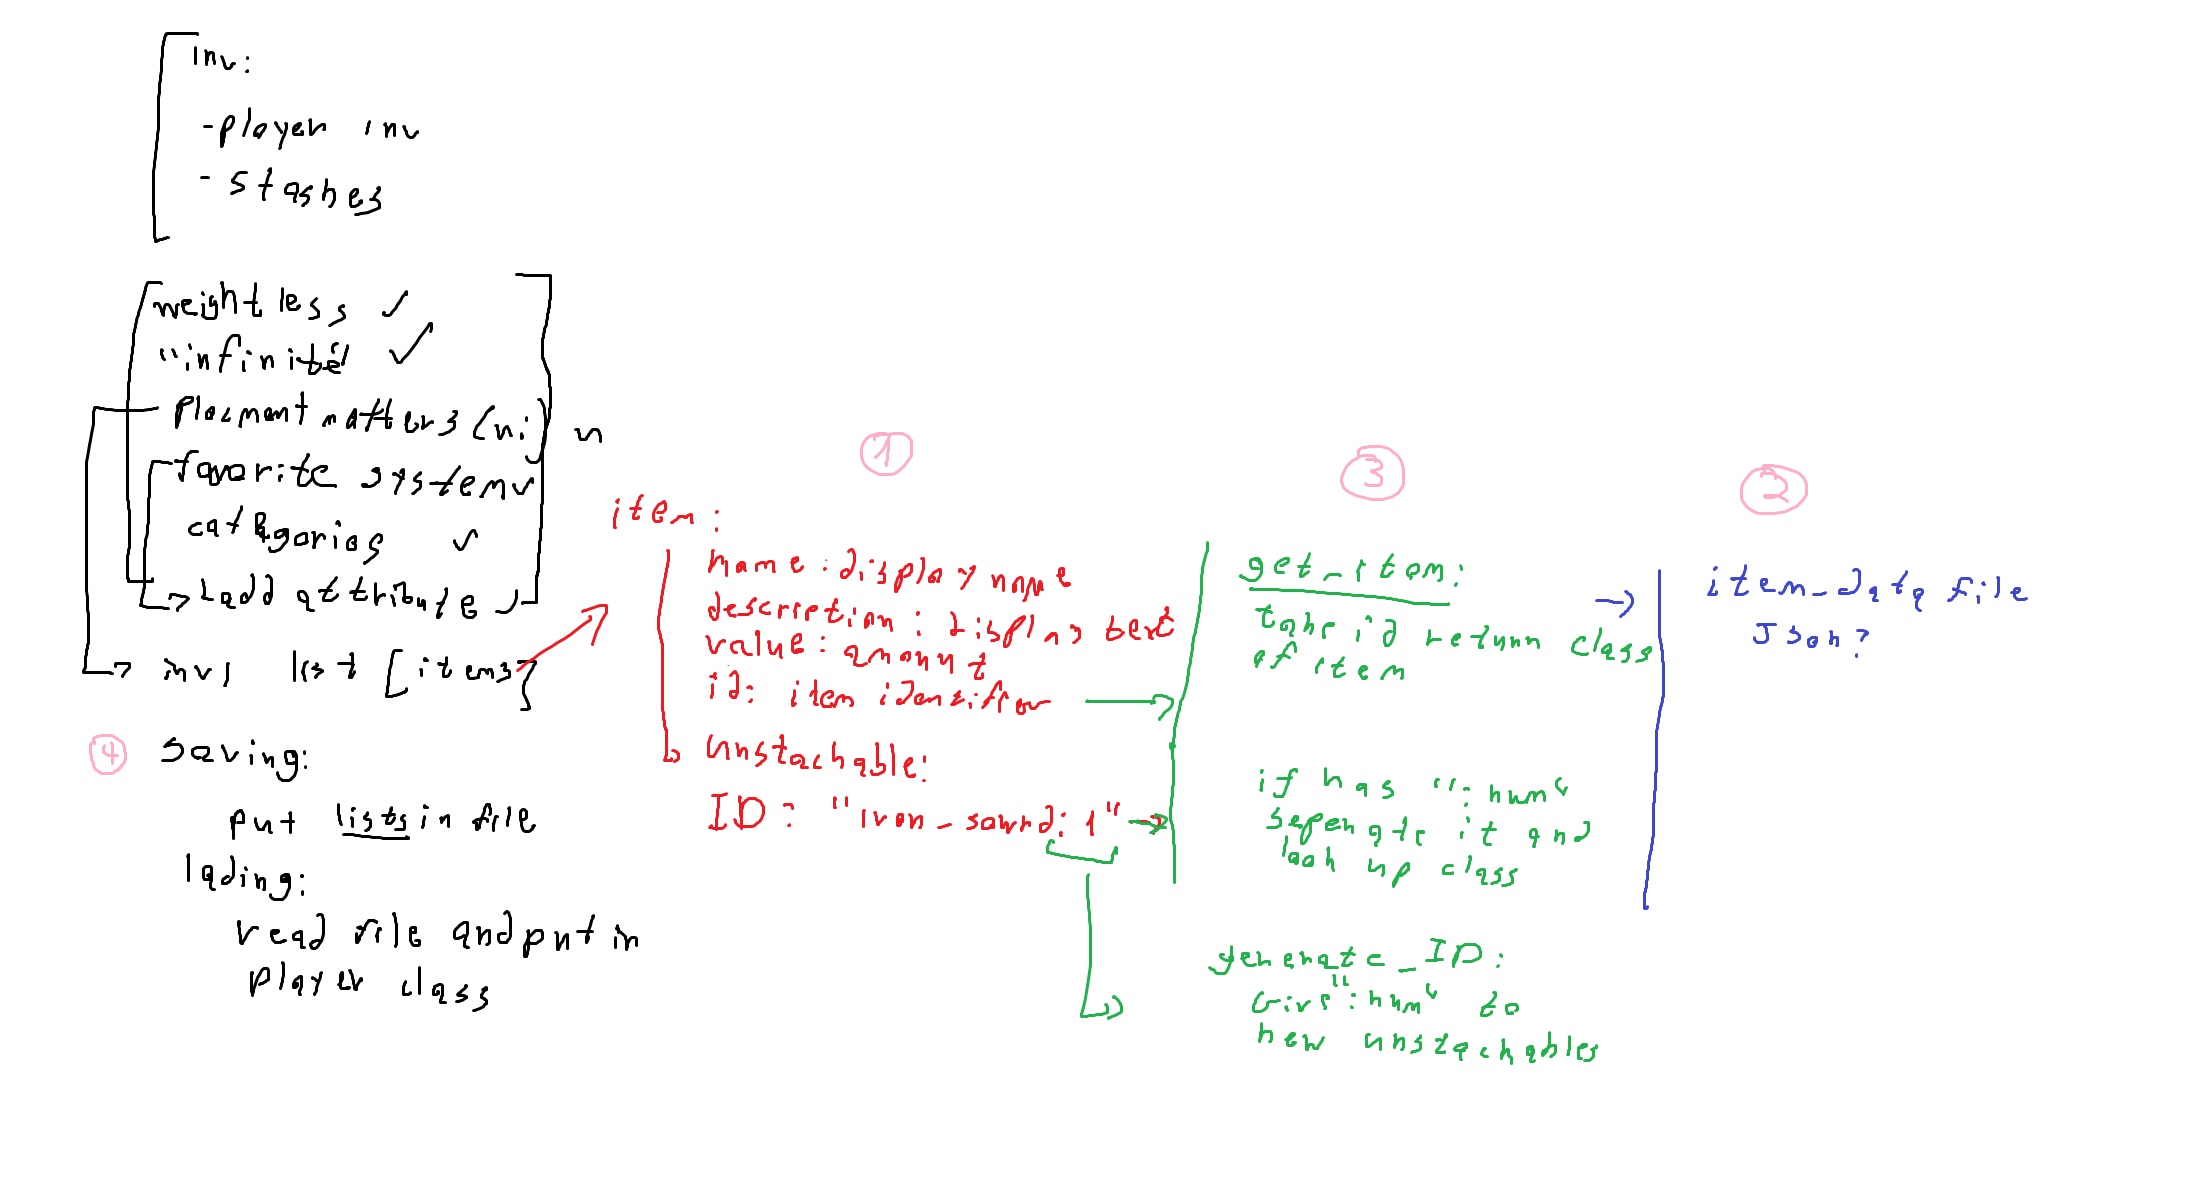 inv:
-player inv
- stashes
weightless ✓
"infinite" ✓
placment matters (ui)
favorite system ✓
categories ✓
add attribute ✓
inv list [items]
④ saving:
put lists in file
lading:
read file and put in
player class
①
item:
name: display name
description: display text
value: amount
id: item identifier
unstackable:
ID: "iron_sword:1"
③
get_item:
take id return class
of item
if has ":num"
seperate it and
look up class
generate_ID:
Give ":num" to
new unstackables
②
item_data file
Json?